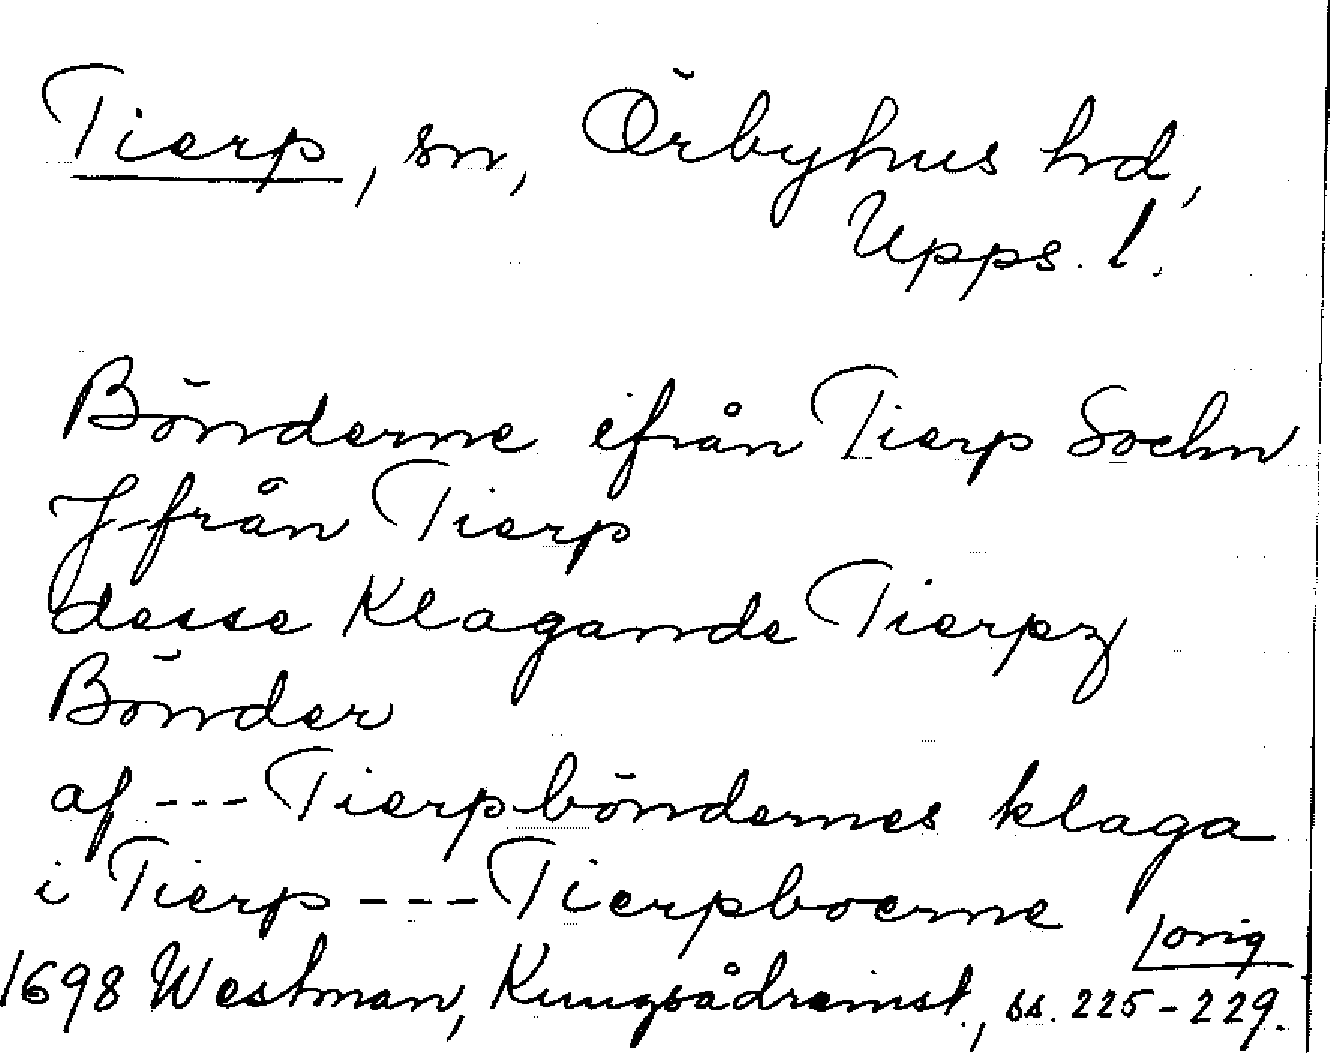 Tierp, sn, Örbyhus hd,
Upps. l.
Bönderne ifrån Tierp Sochn
J från Tierp
desse Klagande Tierpz
Bönder
af --- Tierpböndernes klaga
i Tierp --- Tierpboerne
orig
1698 Westman, Kungsådreinst., ss. 225-229.